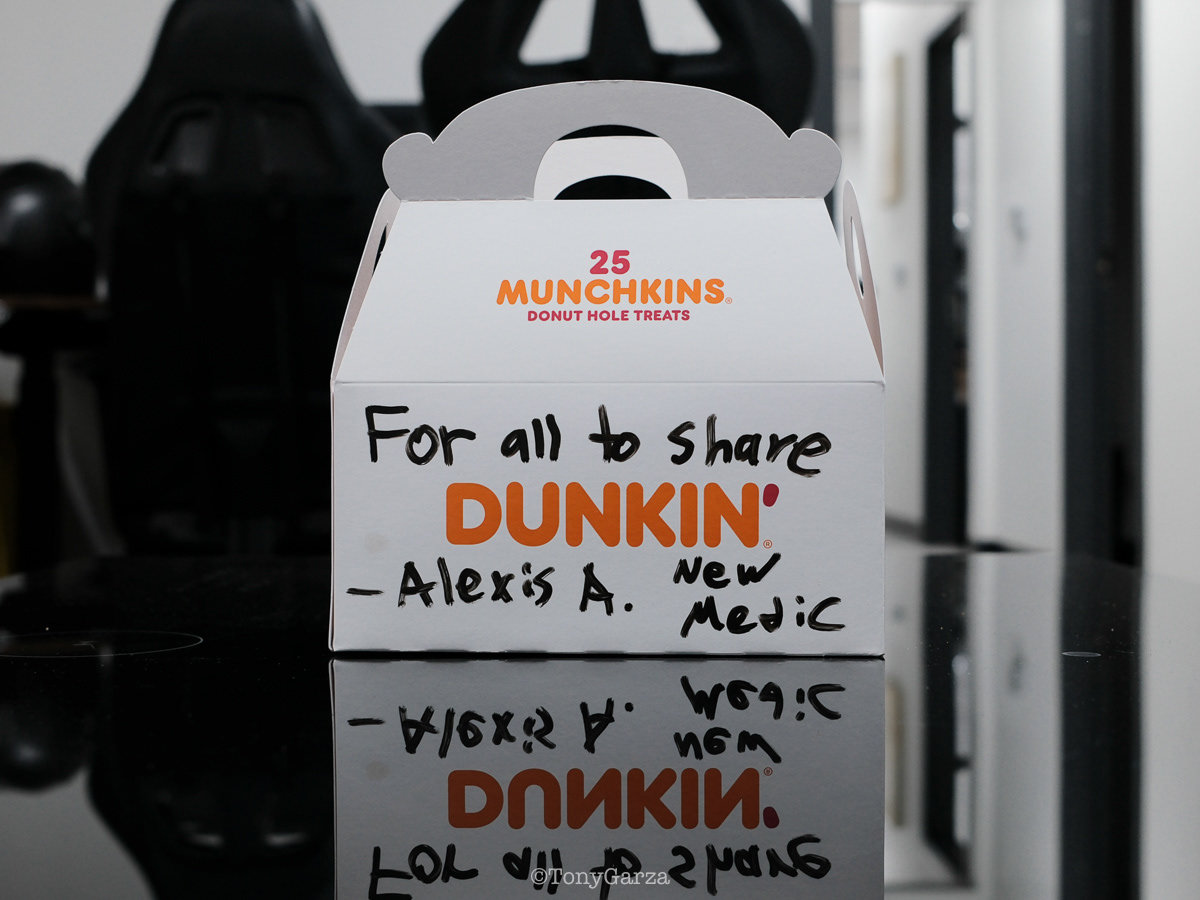 25
MUNCHKINS®
DONUT HOLE TREATS
For all to share
DUNKIN'®
- Alexis A. New
Medic
©TonyGarza